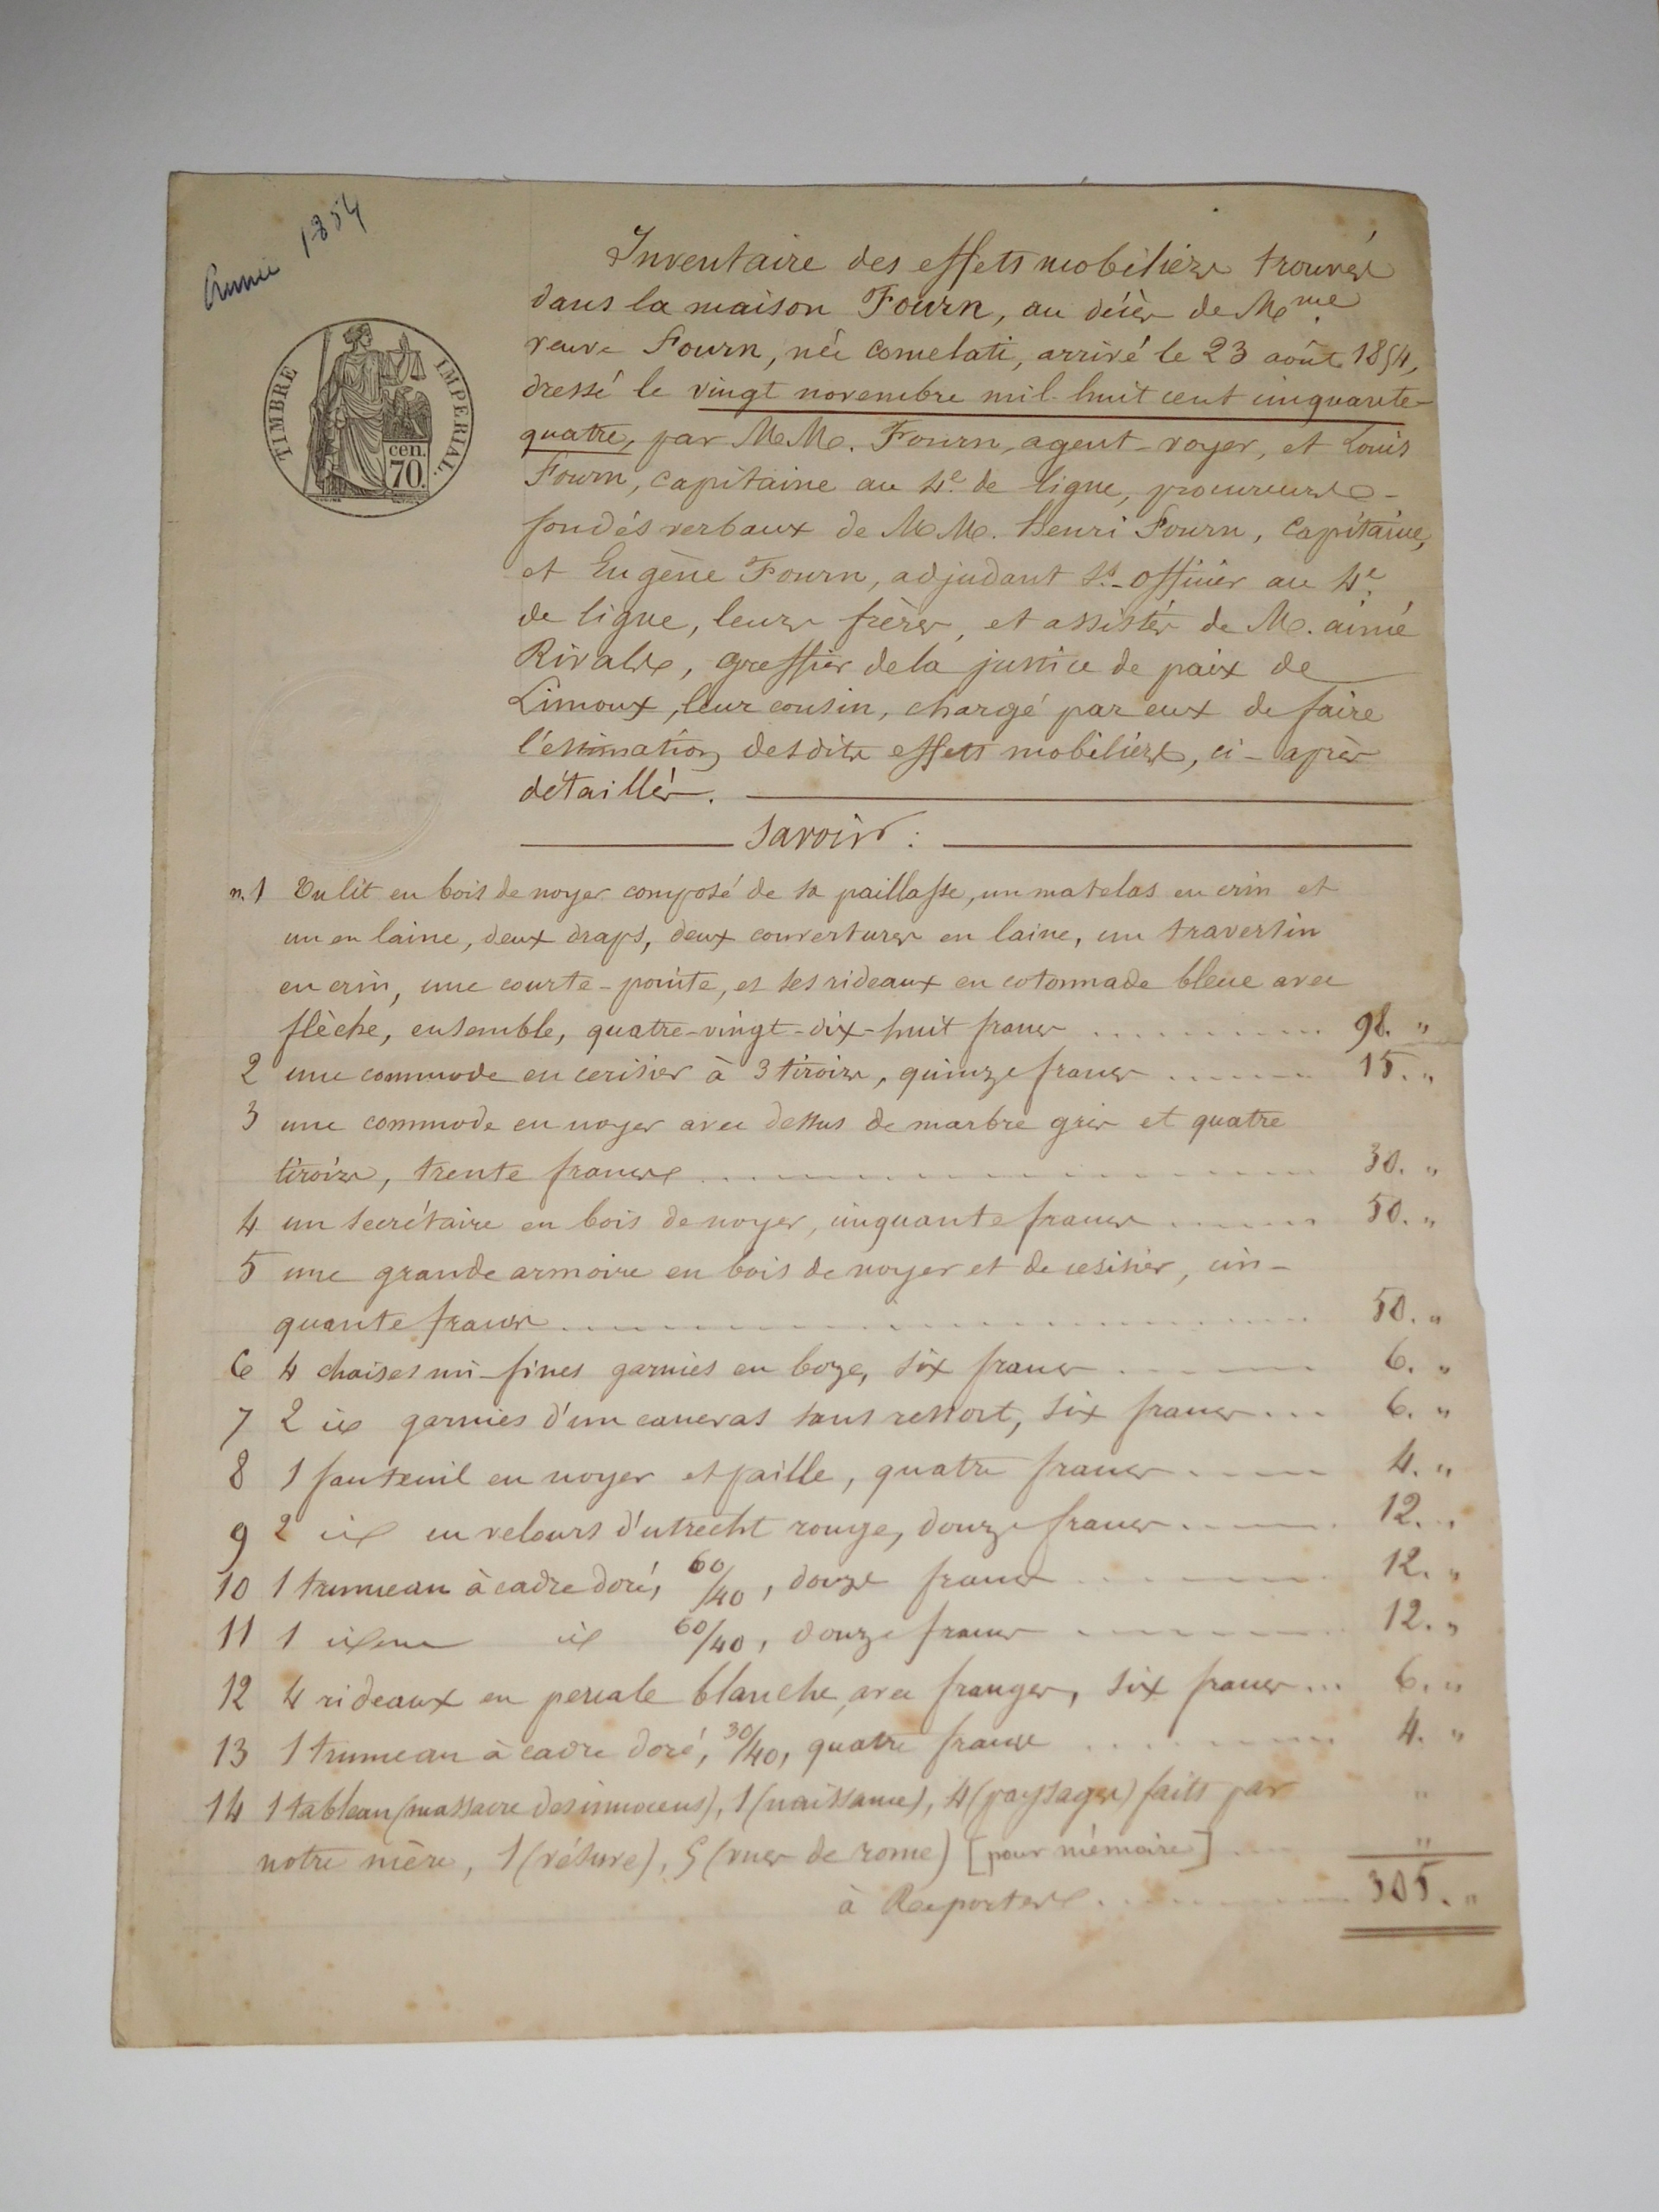 année 1854
TIMBRE IMPERIAL.
cen.
70.
Inventaire des effets mobiliers trouvés
dans la maison Fourn, au décès de Mme
veuve Fourn, née Comelati, arrivé le 23 août 1854,
dressé le vingt novembre mil-huit cent cinquante-
quatre, par M.M. Fourn, agent-voyer, et Louis
Fourn, capitaine au 4e de ligne, procureurs-
fondés verbaux de M.M. Henri Fourn, capitaine,
et Eugène Fourn, adjudant Ss-officier au 4e
de ligne, leurs frères, et assistés de M. aimé
Rivals, greffier de la justice de paix de
Limoux, leur cousin, chargé par eux de faire
l'estimation desdits effets mobiliers, ci-après
détaillés.
Savoir :
n.1 Un lit en bois de noyer composé de sa paillasse, un matelas en crin et
un en laine, deux draps, deux couvertures en laine, un traversin
en crin, une courte-pointe, et ses rideaux en cotonnade bleue avec
flèche, ensemble, quatre-vingt-dix-huit francs .......... 98. "
2 une commode en cerisier à 3 tiroirs, quinze francs ....... 15. "
3 une commode en noyer avec dessus de marbre gris et quatre
tiroirs, trente francs .......... 30. "
4 un secrétaire en bois de noyer, cinquante francs ....... 50. "
5 une grande armoire en bois de noyer et de cesisier, cin-
quante francs .......... 50. "
6 4 chaises mi-fines garnies en boze, six francs ....... 6. "
7 2 id garnies d'un canevas sans ressort, six francs ... 6. "
8 1 fauteuil en noyer et paille, quatre francs ..... 4. "
9 2 id en velours d'utrecht rouge, douze francs ..... 12. "
10 1 trumeau à cadre doré, 60/40, douze francs ....... 12. "
11 1 idem id 60/40, douze francs ....... 12. "
12 4 rideaux en percale blanche avec franges, six francs ... 6. "
13 1 trumeau à cadre doré, 30/40, quatre francs ....... 4. "
14 1 tableau (massacre des innocens), 1 (naissance), 4 (paysages) faits par "
notre mère, 1 (vésuve), 5 (vues de rome) [pour mémoire] .... "
à Reporter .......... 305. "